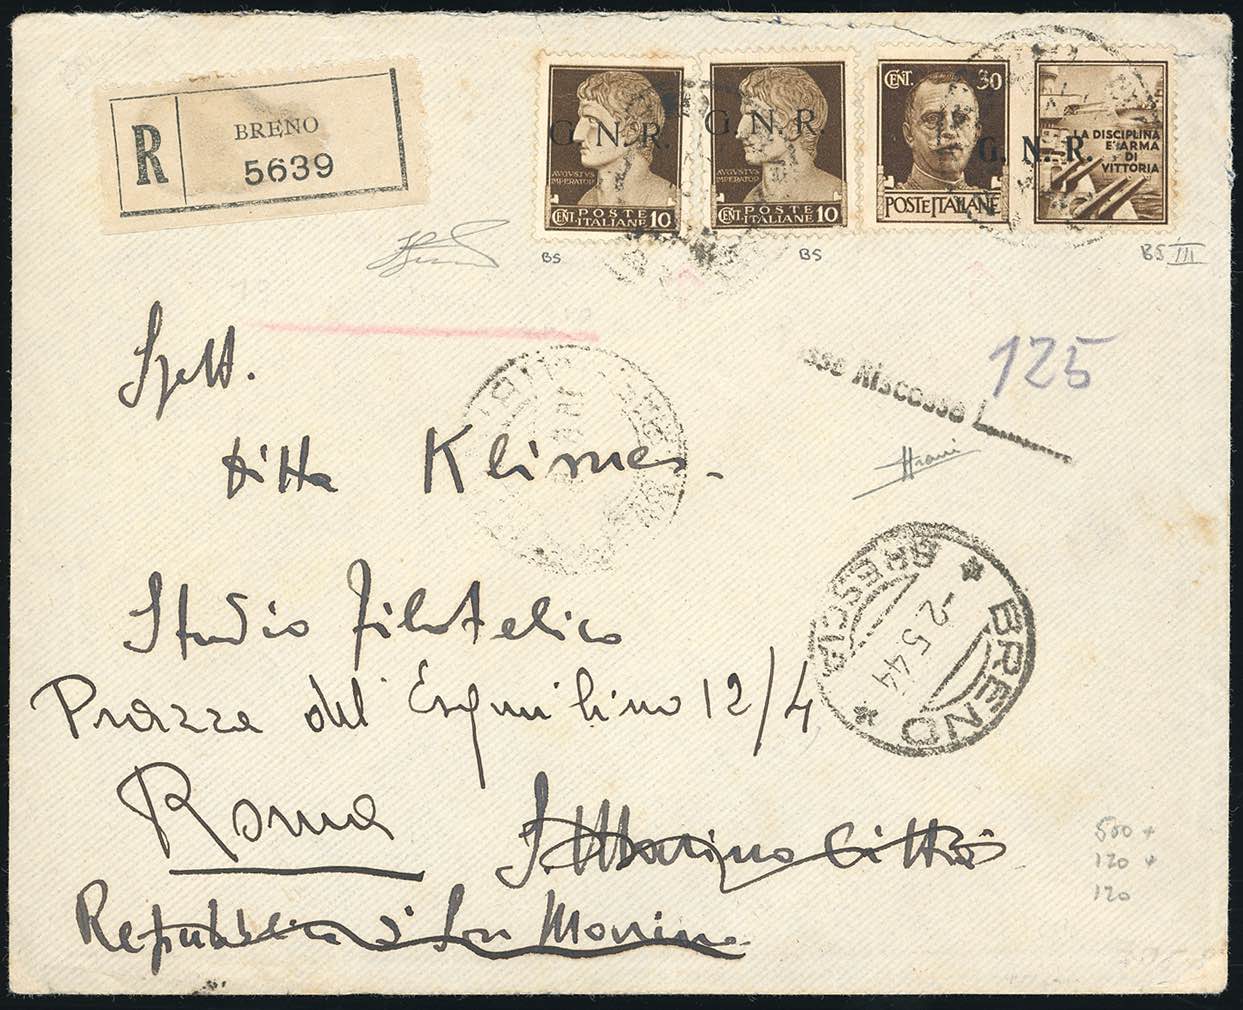 R
BRENO
5639
G. N. R.
AVGVSTVS
IMPERATOR
CENT. POSTE
ITALIANE 10
G. N. R.
AVGVSTVS
IMPERATOR
CENT. POSTE
ITALIANE 10
CENT. 30
G. N. R.
POSTE ITALIANE
LA DISCIPLINA
E' ARMA
DI
VITTORIA
BS
BS
BS III
Spett.
ditta Klimes.
Studio Filatelico
Piazza del Esquilino 12/4
Roma
S. Marino Città
Republica di San Marino
125
Riscossa L
BRENO
* BRESCIA *
-2.5.44
500 +
120 +
120